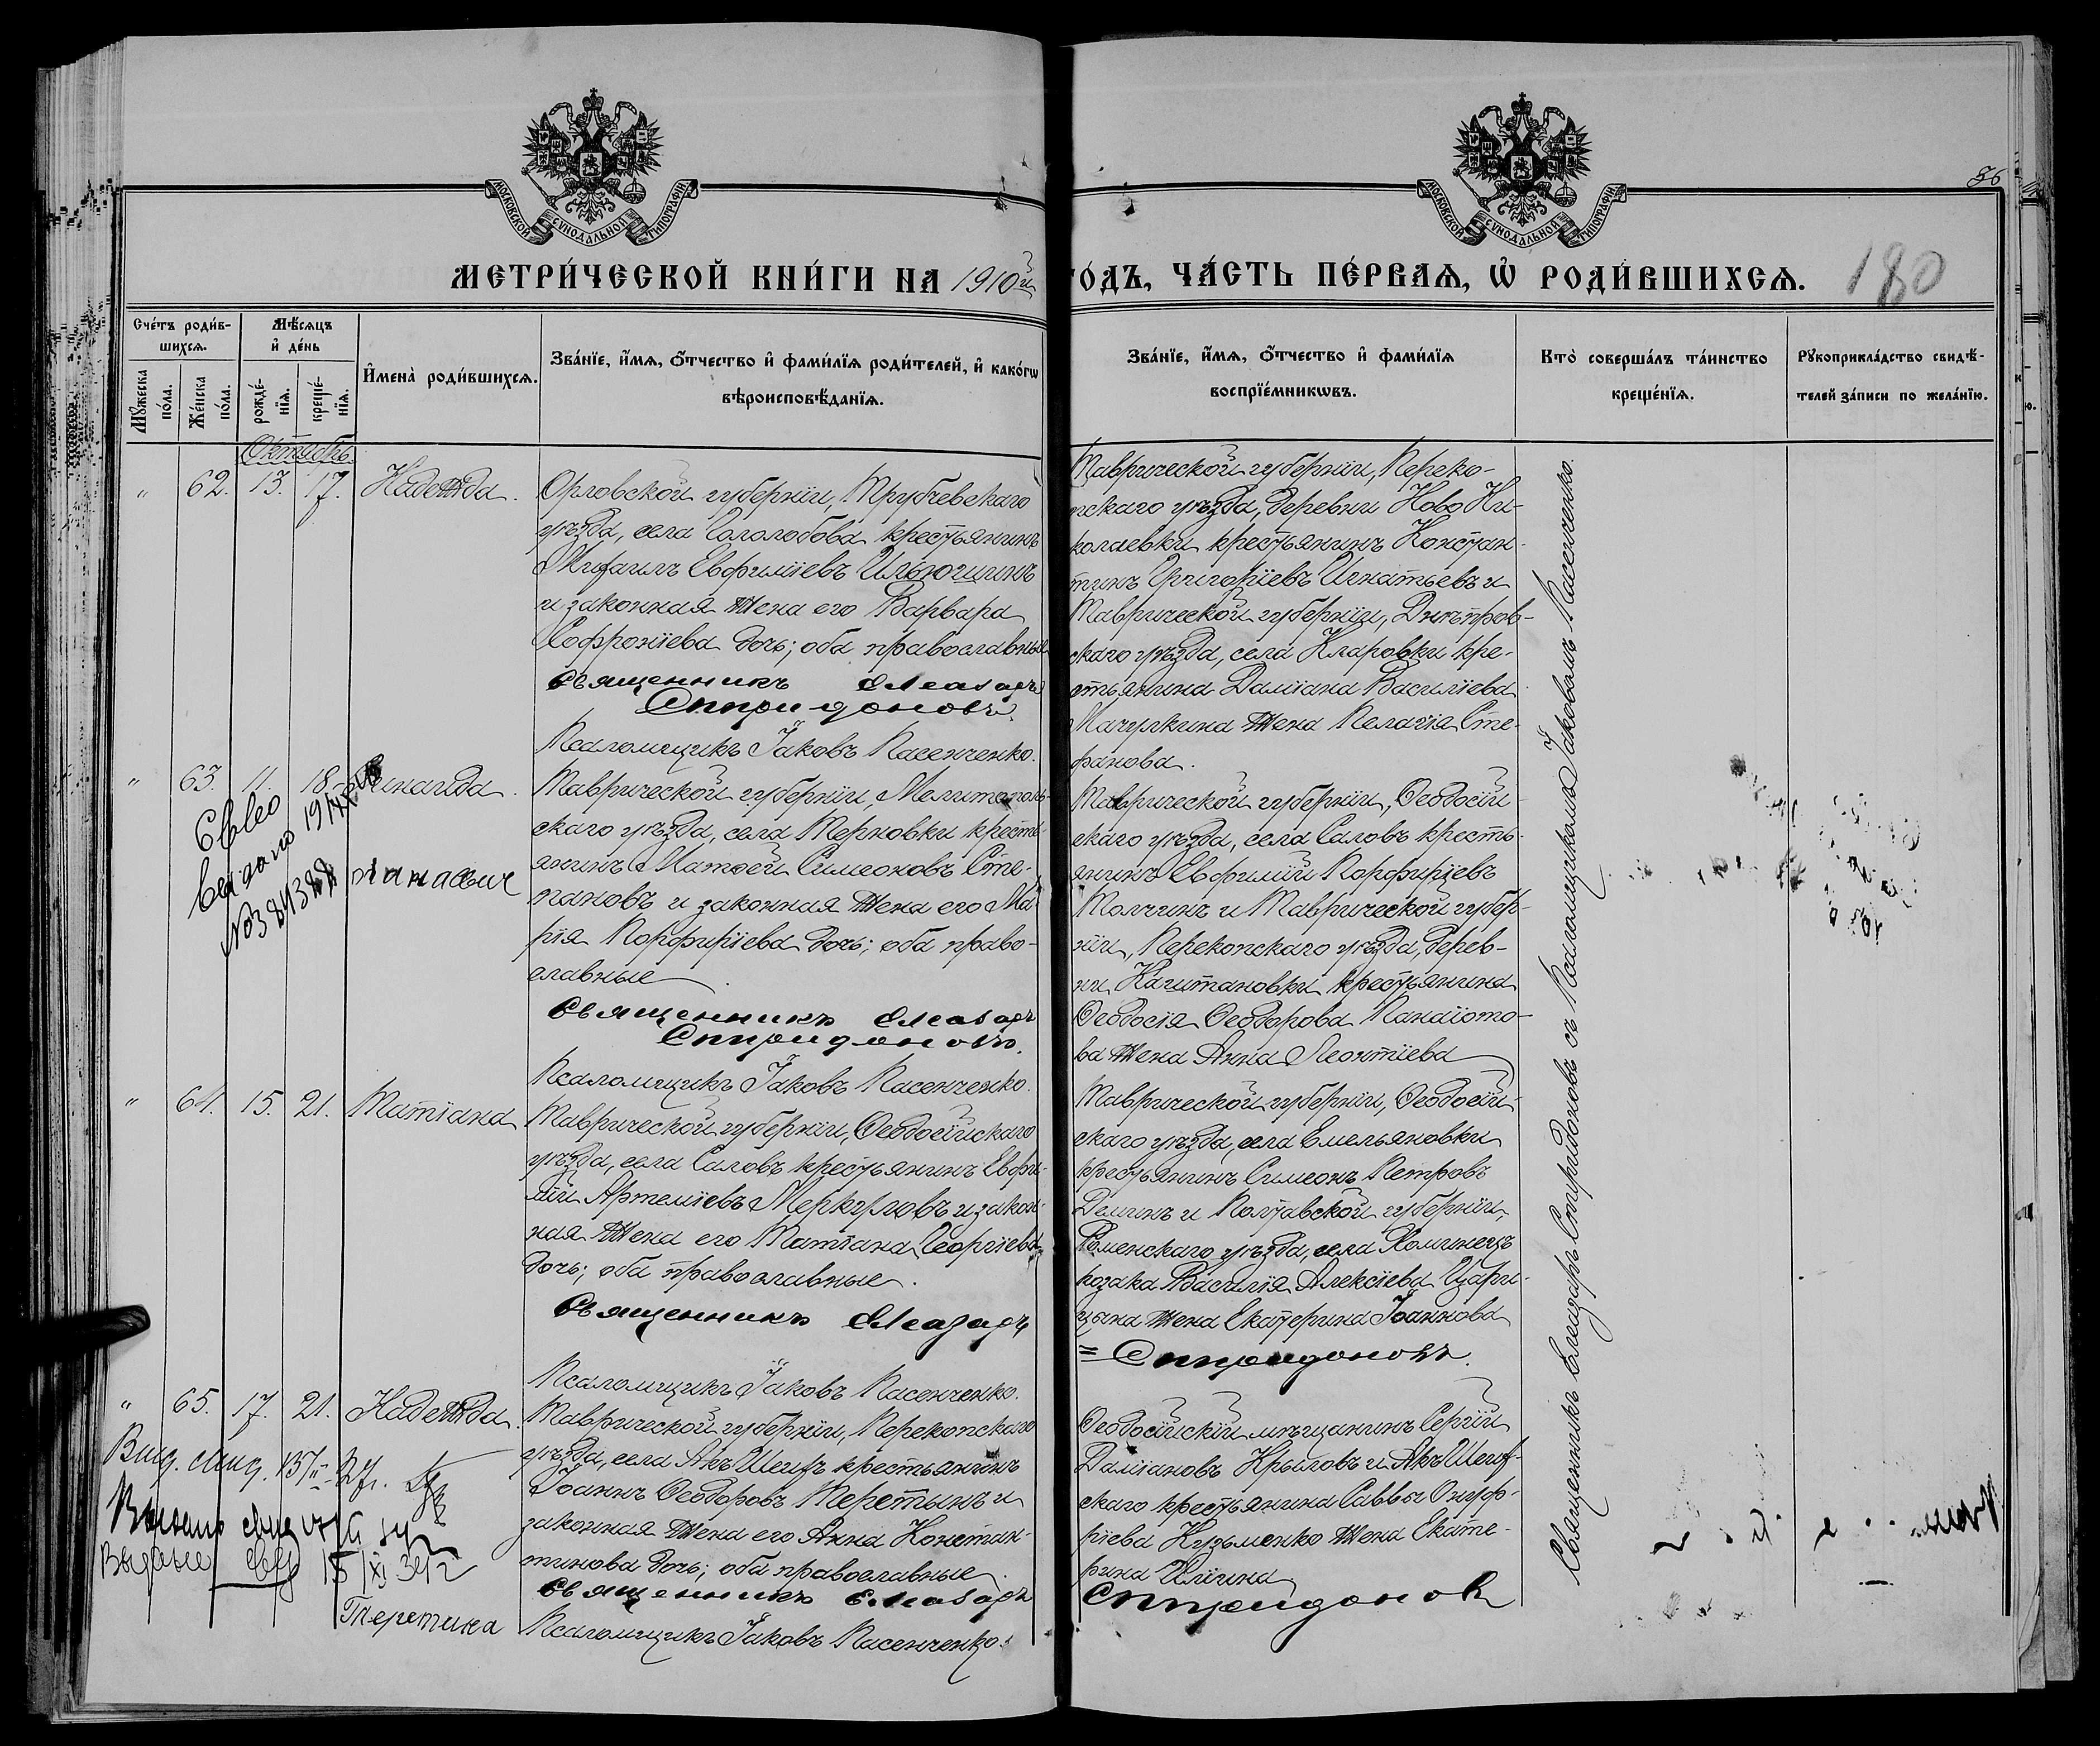 МОСКОВСКОЙ СѴНОДАЛЬНОЙ ТИПОГРАФІИ
МОСКОВСКОЙ СѴНОДАЛЬНОЙ ТИПОГРАФІИ
36
МЕТРИ́ЧЕСКОЙ КНИ́ГИ НА 1910й ГО́ДЪ, ЧА́СТЬ ПЕ́РВАѦ, Ѡ҆ РОДИ́ВШИХСѦ.
180
Сче́тъ роди́в-
шихсѧ.
Мꙋ́жеска по́ла.
Же́нска по́ла.
Мѣ́сѧцъ
и҆ де́нь
рожде́-
нїѧ.
креще́-
нїѧ.
И҆мена̀ роди́вшихсѧ.
Зва́нїе, и҆́мѧ, ѻ҆́тчество и҆ фами́лїѧ роди́телей, и҆ како́гѡ
вѣроисповѣ́данїѧ.
Зва́нїе, и҆́мѧ, ѻ҆́тчество и҆ фами́лїѧ
воспрїе́мникѡвъ.
Кто̀ соверша́лъ та́инство
креще́нїѧ.
Рꙋкоприкла́дство свидѣ́-
телей за́писи по жела́нїю.
Октябрь
" 62. 13. 17. Надежда.
Орловской губерніи, Трубчевскаго
уѣзда, села Сололобова крестьянинъ
Михаилъ Евфиміевъ Илюшинъ
и законная жена его Варвара
Софроніева дочь; оба православные
Священникъ Елеазаръ
Спиридоновъ.
Псаломщикъ Іаковъ Пасенченко.
Таврической губерніи, Переко-
пскаго уѣзда, деревни Ново Ни-
колаевки крестьянинъ Констан-
тинъ Григоріевъ Игнатьевъ и
Таврической губерніи, Днѣпров-
скаго уѣзда, села Кларовки кре-
стьянина Даміана Василіева
Мачулкина жена Пелагія Сте-
фанова.
" 63. 11. 18. Зинаида.
выдано 1914
№384388
Таврической губерніи, Мелитополь-
скаго уѣзда, села Терновки кресть-
янинъ Матѳей Симеоновъ Сте-
пановъ и законная жена его Ма-
рія Порфиріева дочь; оба право-
славные
Священникъ Елеазаръ
Спиридоновъ.
Псаломщикъ Іаковъ Пасенченко.
Таврической губерніи, Ѳеодосій-
скаго уѣзда, села Саловъ кресть-
янинъ Евфимій Порфиріевъ
Толчинъ и Таврической губер-
ніи, Перекопскаго уѣзда, дерев-
ни Каштановки крестьянина
Ѳеодосія Ѳеодорова Панаіото-
ва жена Анна Леонтіева
" 64. 15. 21. Татіана
Таврической губерніи, Ѳеодосійскаго
уѣзда, села Саловъ крестьянинъ Евфи-
мій Артеміевъ Меркуловъ и закон-
ная жена его Татіана Георгіева
дочь; оба православные.
Священникъ Елеазаръ
Псаломщикъ Іаковъ Пасенченко.
Таврической губерніи, Ѳеодосій-
скаго уѣзда, села Емельяновки
крестьянинъ Симеонъ Петровъ
Деминъ и Полтавской губерніи,
Роменскаго уѣзда, села Хоминецъ
козака Василія Алексіева Цари-
цына жена Екатерина Іоаннова
= Спиридоновъ.
" 65. 17. 21. Надежда.
Таврической губерніи, Перекопскаго
уѣзда, села Акъ Шеихъ крестьянинъ
Іоаннъ Ѳеодоровъ Теретынъ и
законная жена его Анна Констан-
тинова дочь; оба православные.
Священникъ Елеазаръ
Псаломщикъ Іаковъ Пасенченко.
Ѳеодосійскій мѣщанинъ Сергій
Даміановъ Крыловъ и Акъ Шеих-
скаго крестьянина Саввы Онуф-
ріева Кузьменко жена Екате-
рина Иліина
Спиридоновъ
Теретина
Священникъ Елеазаръ Спиридоновъ съ Псаломщикомъ Іаковомъ Пасенченко.